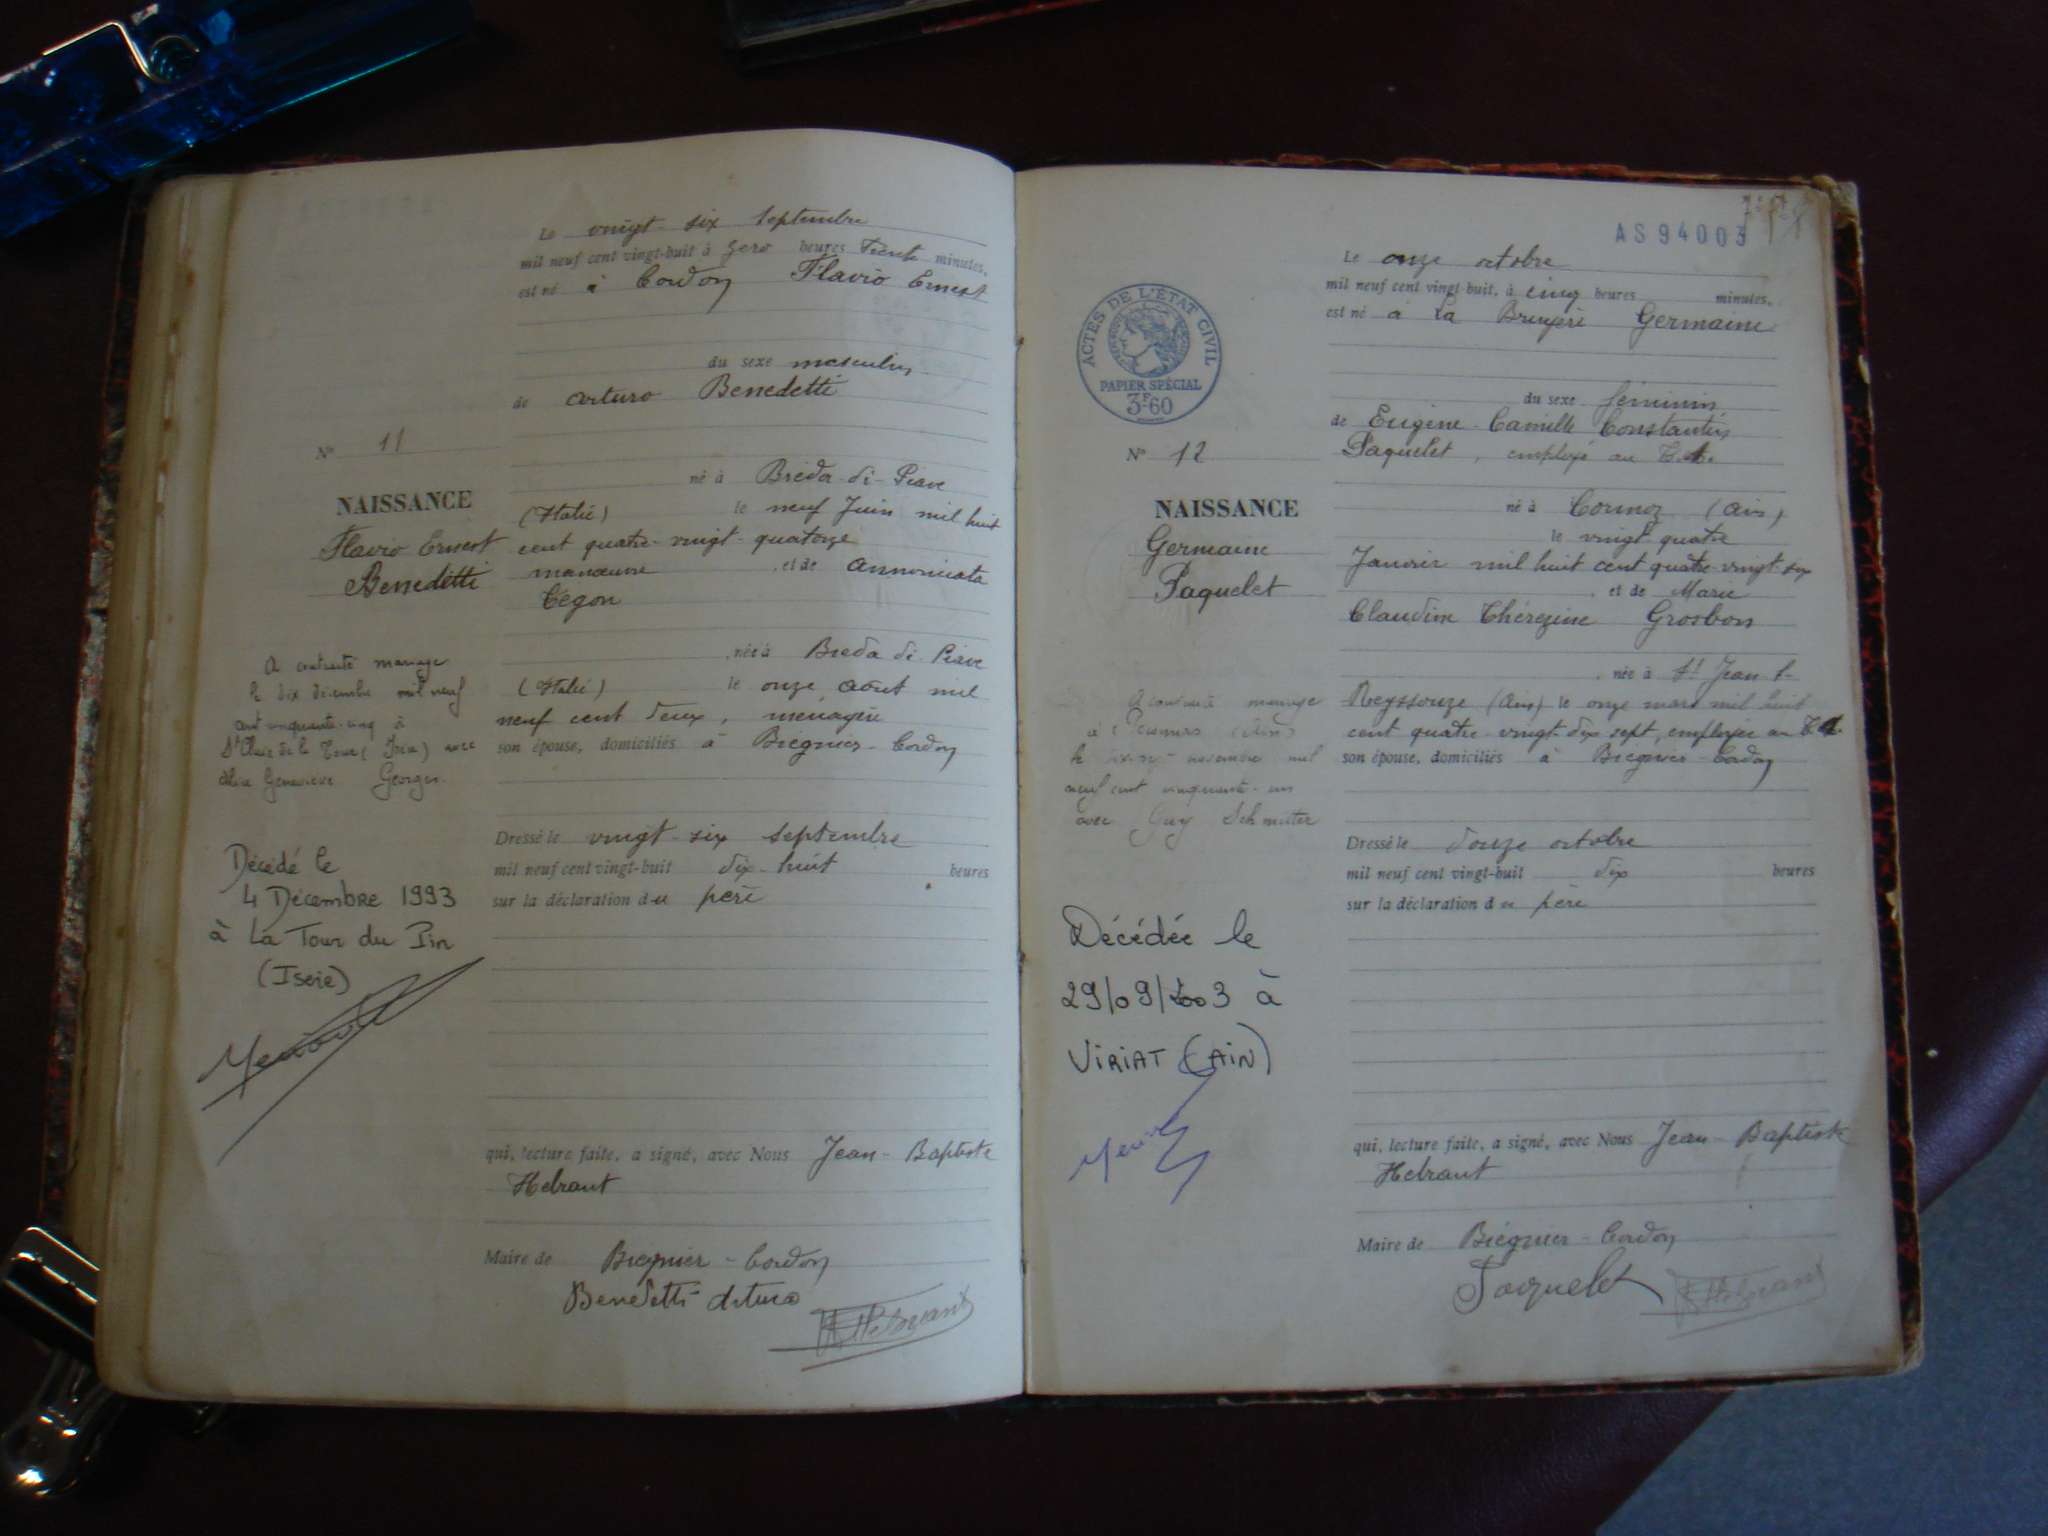 Le vingt-six septembre
mil neuf cent vingt-huit à zero heures trente minutes,
est né à Cordon Flavio Ernest
du sexe masculin
de Arturo Benedetti
N° 11
né à Breda-di-Piave
NAISSANCE
(Italie) le neuf Juin mil huit
Flavio Ernest
cent quatre-vingt-quatorze
Benedetti
manœuvre, et de Annonciata
Cégon
née à Breda di Piave
A contracté mariage
le dix décembre mil neuf
cent cinquante-cinq à
St Clair de la Tour (Isère) avec
Alice Geneviève Georges.
(Italie) le onze Août mil
neuf cent deux, ménagère
son épouse, domiciliés à Brégnier-Cordon
Dressé le vingt-six septembre
mil neuf cent vingt-huit dix-huit heures
sur la déclaration du père
Décédé le
4 Décembre 1993
à La Tour du Pin
(Isère)
qui, lecture faite, a signé, avec Nous Jean-Baptiste
Hebrant
Maire de Brégnier-Cordon
Benedetti Arturo
Hebrant
AS94003
Le onze octobre
mil neuf cent vingt-huit, à cinq heures minutes,
est né à La Bruyère Germaine
ACTES DE L'ÉTAT CIVIL
PAPIER SPÉCIAL
3F60
du sexe féminin
de Eugène Camille Constantin
Paquelet, employé au
N° 12
NAISSANCE
Germaine
Paquelet
né à Cormoz (Ain)
le vingt quatre
Janvier mil huit cent quatre-vingt-six
, et de Marie
Claudine Thérezine Grosbon
née à St Jean s-
Reyssouze (Ain) le onze mars mil huit
cent quatre-vingt-dix sept, employée au
son épouse, domiciliés à Brégnier-Cordon
A contracté mariage
à (Ain)
le novembre mil
neuf cent cinquante-un
avec Guy
Dressé le douze octobre
mil neuf cent vingt-huit dix heures
sur la déclaration du père
Décédée le
29/09/2003 à
VIRIAT (AIN)
qui, lecture faite, a signé, avec Nous Jean-Baptiste
Hebrant
Maire de Brégnier-Cordon
Paquelet
Hebrant